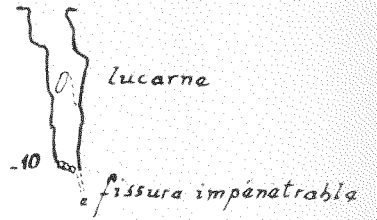 lucarne
-10
fissura impénétrable